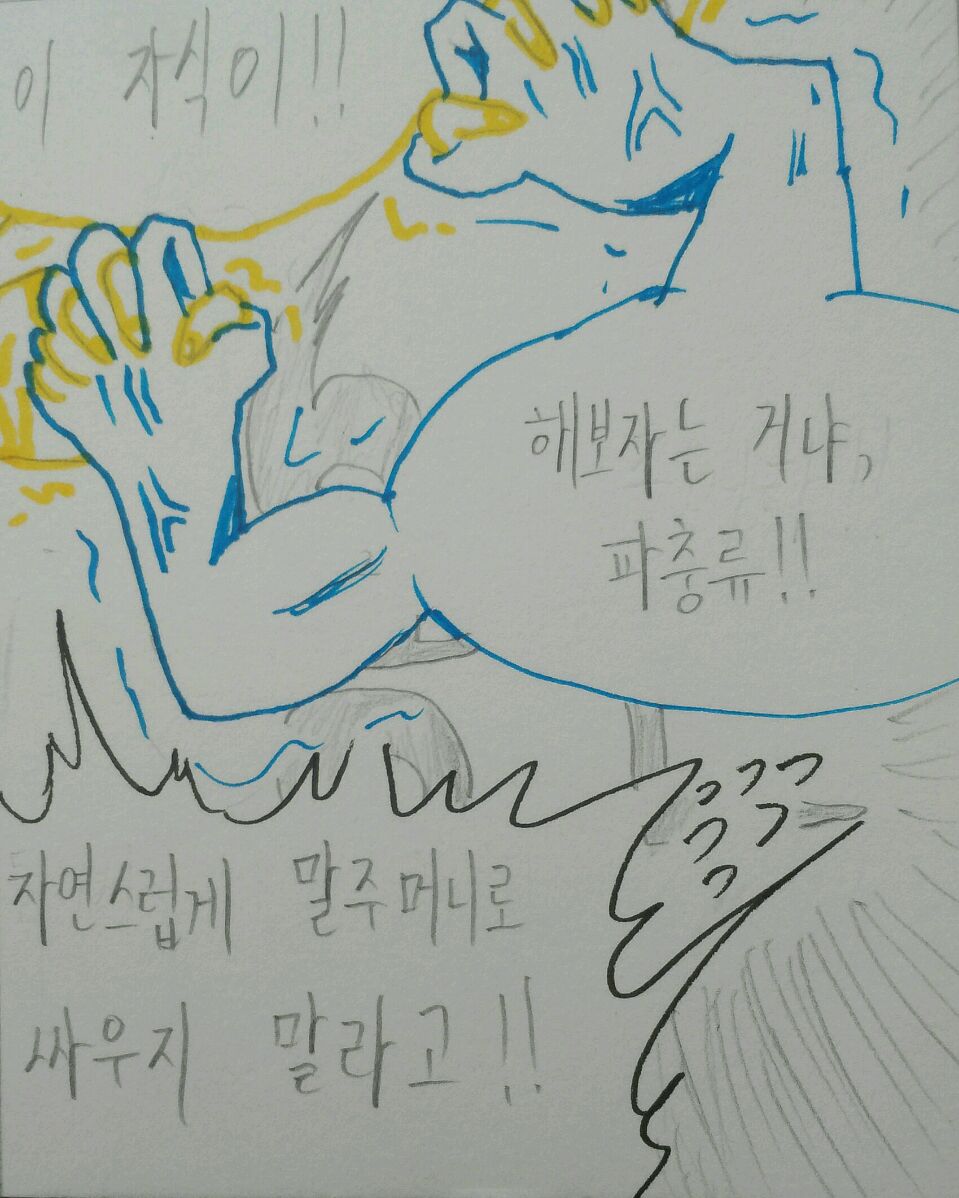 이 자식이!!
해보자는 거냐,
파충류!!
자연스럽게 말주머니로
싸우지 말라고!!